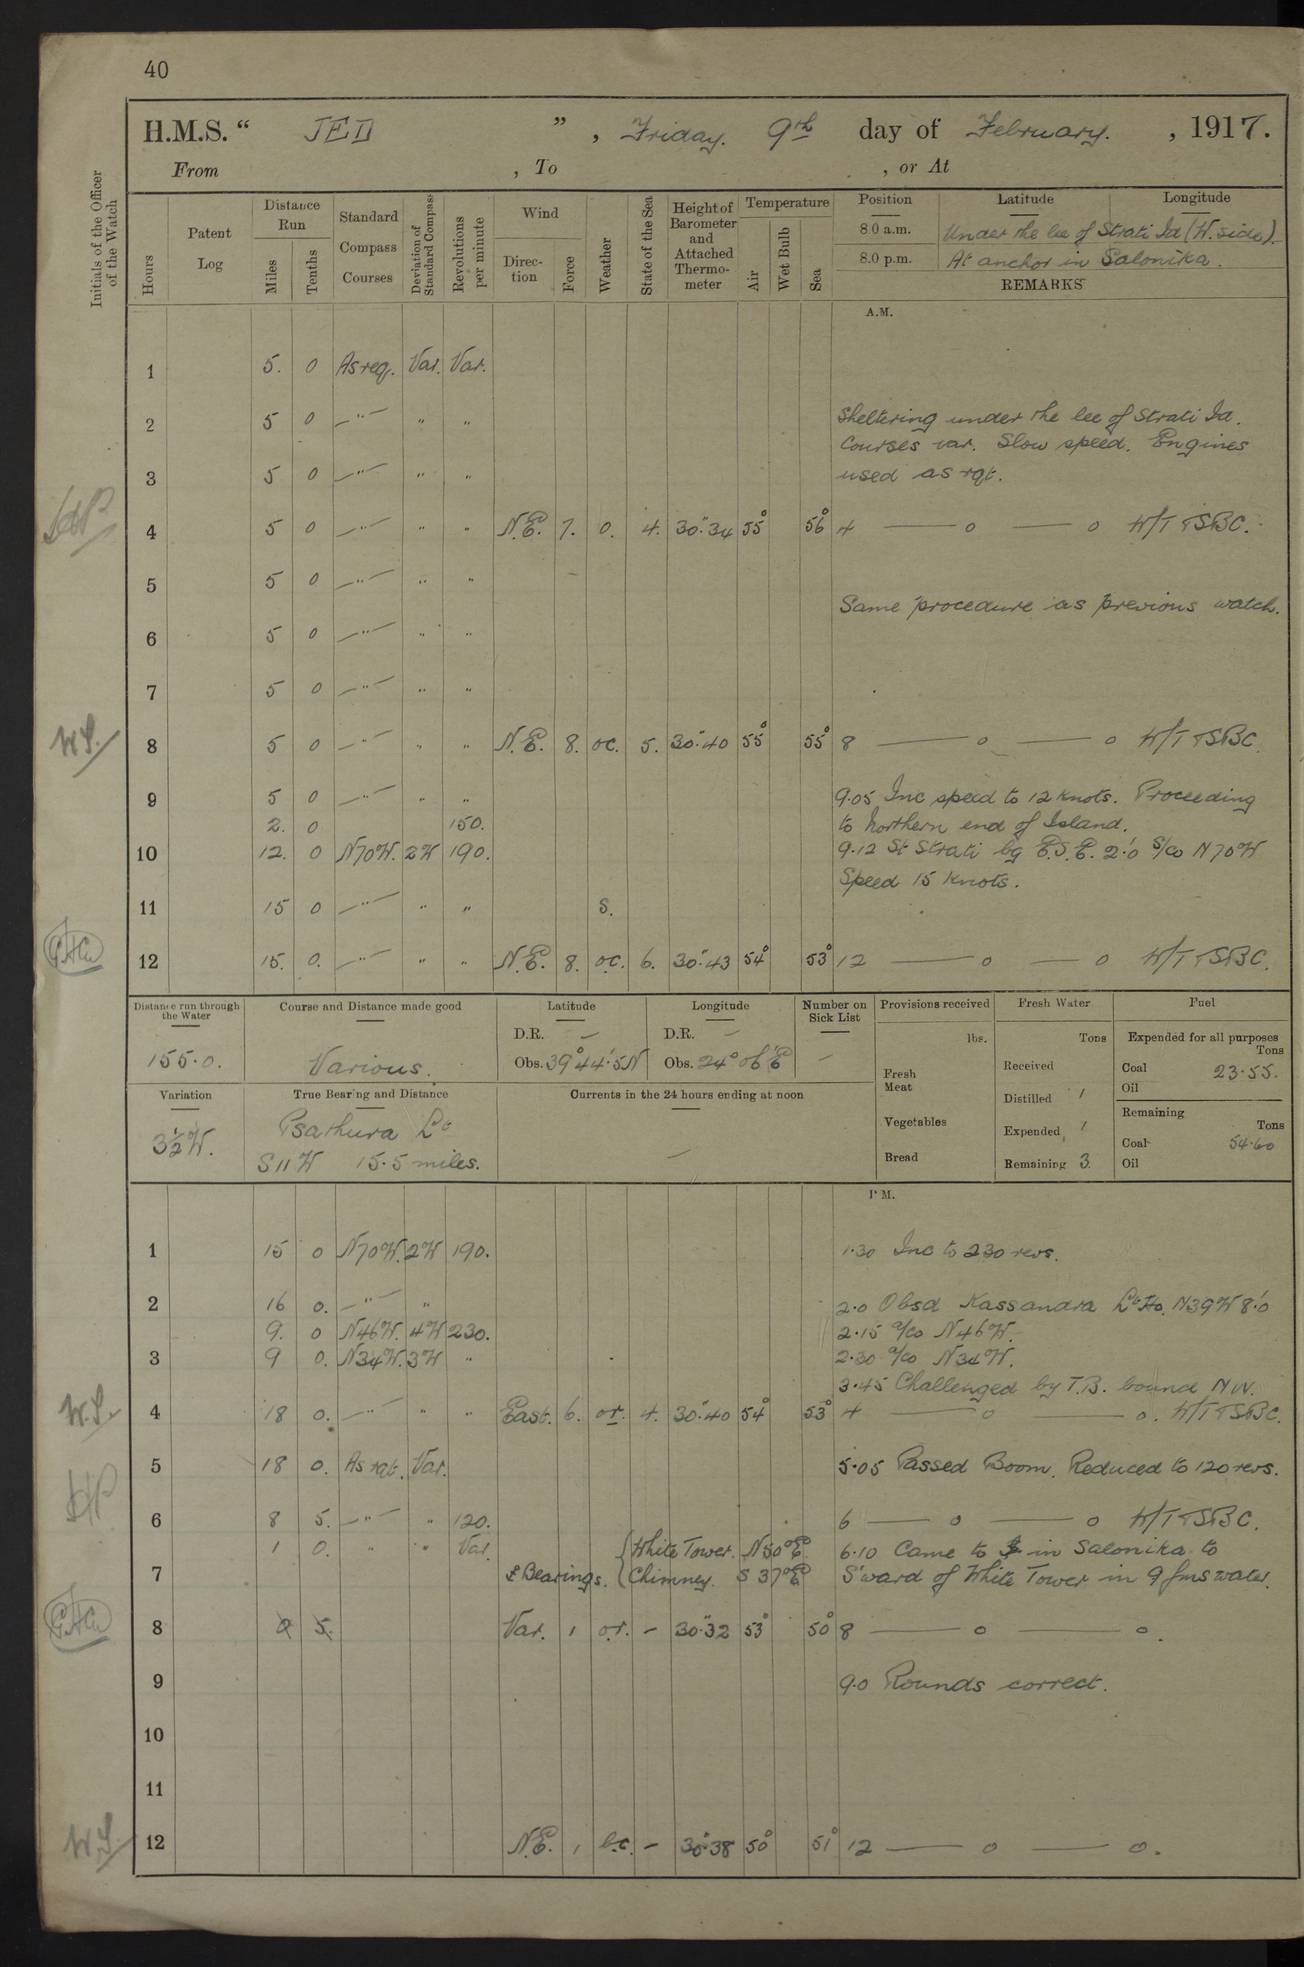 40
H.M.S. “ JED ” , Friday. 9th day of February. , 1917.
From , To , or At
Initials of the Officer of the Watch
Hours
Patent Log
Distance Run
Miles Tenths
Standard Compass Courses
Deviation of Standard Compass
Revolutions per minute
Wind
Direction Force
Weather
State of the Sea
Height of Barometer and Attached Thermometer
Temperature
Air Wet Bulb Sea
Position Latitude Longitude
8.0 a.m. Under the lee of Strati Id (W. side).
8.0 p.m. At anchor in Salonika.
REMARKS
A.M.
1 5. 0 As req. Var. Var.
2 5 0 —"— " " Sheltering under the lee of Strati Id.
Courses var. Slow speed. Engines
3 5 0 —"— " " used as rqt.
4 5 0 —"— " " N.E. 7. o. 4. 30".34 55° 56° 4 — o — o W/T TSBC.
5 5 0 —"— " "
Same procedure as previous watch.
6 5 0 —"— " "
7 5 0 —"— " "
W.S. 8 5 0 —"— " " N.E. 8. oc. 5. 30".40 55° 55° 8 — o — o W/T TSBC.
9 5 0 —"— " " 9.05 Inc speed to 12 knots. Proceeding
2. 0 150. to Northern end of Island.
10 12. 0 N70W. 2W 190. 9.12 St Strati bg E.S.E. 2'.0 S/co N70W
Speed 15 knots.
11 15 0 —"— " " S.
12 15. 0. —"— " " N.E. 8. o.c. 6. 30".43 54° 53° 12 — o — o W/T TSBC.
Distance run through the Water
155.0.
Course and Distance made good
Various.
Latitude
D.R. —
Obs. 39°44'.5N
Longitude
D.R. —
Obs. 24°06'E
Number on Sick List
—
Provisions received
lbs.
Fresh Meat
Vegetables
Bread
Fresh Water
Tons
Received
Distilled 1
Expended 1
Remaining 3.
Fuel
Expended for all purposes
Tons
Coal 23.55.
Oil
Remaining
Tons
Coal 54.60
Oil
Variation
3½W.
True Bearing and Distance
Psathura Lt
S11W 15.5 miles.
Currents in the 24 hours ending at noon
—
P.M.
1 15 0 N70W. 2W 190. 1.30 Inc to 230 revs.
2 16 0. —"— " 2.0 Obsd Kassandra Lt Ho. N39W 8'.0
9. 0 N46W. 4W 230. 2.15 a/co N46W.
3 9 0. N34W. 3W " 2.30 a/co N34W.
3.45 Challenged by T.B. bound NW.
W.S. 4 18 0. —"— " " East. 6. or. 4. 30".40 54° 53° 4 — o — o. W/T TSBC.
5 18 0. As rqt. Var. 5.05 Passed Boom. Reduced to 120 revs.
6 8 5. —"— " 120. 6 — o — o W/T TSBC.
1 0. " " Var. White Tower. N50°E 6.10 Came to ⚓ in Salonika to
7 ⚓ Bearings. Chimney. S 37°E S'ward of White Tower in 9 fms water.
8 0 5. Var. 1 o.r. – 30".32 53° 50° 8 — o — o.
9 9.0 Rounds correct.
10
11
W.S. 12 N.E. 1 b.c. – 30".38 50° 51° 12 — o — o.